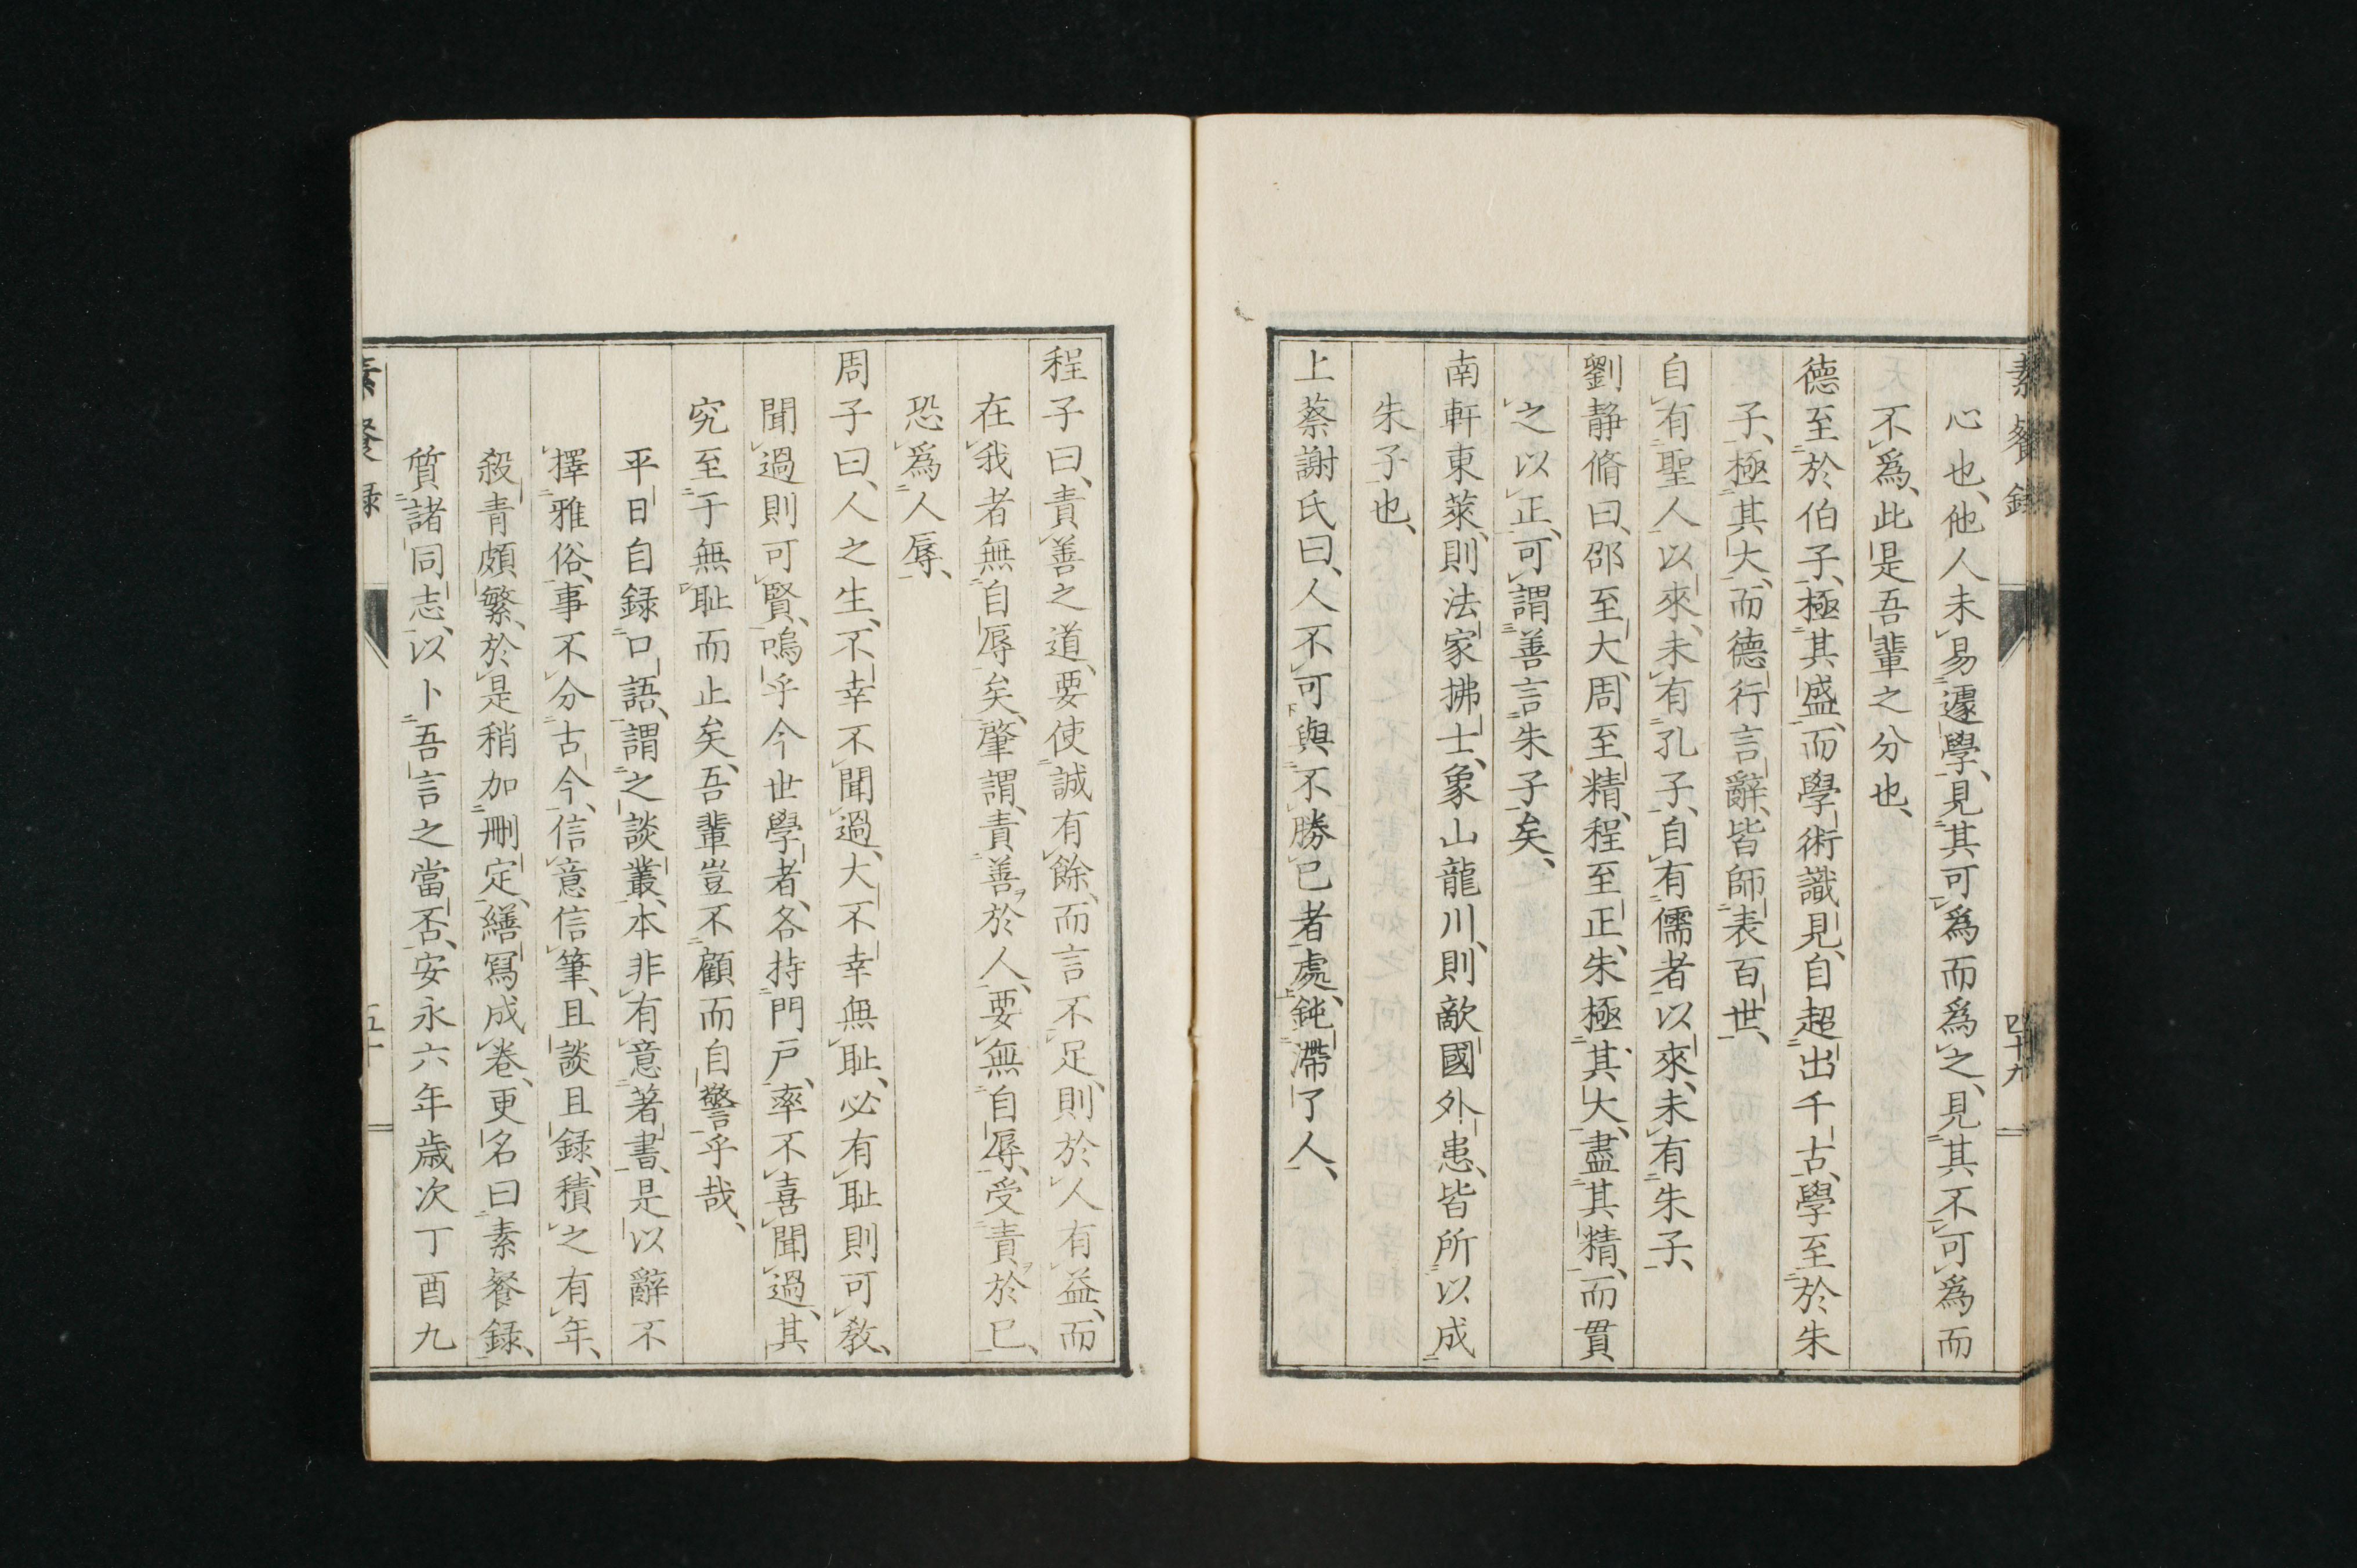 素餐錄
四十九
心也、他人未易遽學、見其可爲而爲之、見其不可爲而
不爲、此是吾輩之分也、
德至於伯子、極其盛、而學術識見、自超出千古、學至於朱
子、極其大、而德行言辭、皆師表百世、
自有聖人以來、未有孔子、自有儒者以來、未有朱子、
劉静脩曰、邵至大、周至精、程至正、朱極其大、盡其精、而貫
之以正、可謂善言朱子矣、
南軒東萊、則法家拂士、象山龍川、則敵國外患、皆所以成
朱子也、
上蔡謝氏曰、人不可與不勝已者處、鈍滯了人、
程子曰、責善之道、要使誠有餘、而言不足、則於人有益、而
在我者無自辱矣、肇謂、責善於人、要無自辱、受責於已、
恐爲人辱、
周子曰、人之生、不幸不聞過、大不幸無耻、必有耻則可教、
聞過則可賢、嗚乎今世學者、各持門戸、率不喜聞過、其
究至于無耻而止矣、吾輩豈不顧而自警乎哉、
平日自録口語、謂之談叢、本非有意著書、是以辭不
擇雅俗、事不分古今、信意信筆、且談且錄、積之有年、
殺青頗繁、於是稍加刪定、繕冩成卷、更名曰素餐録、
質諸同志、以卜吾言之當否、安永六年歳次丁酉九